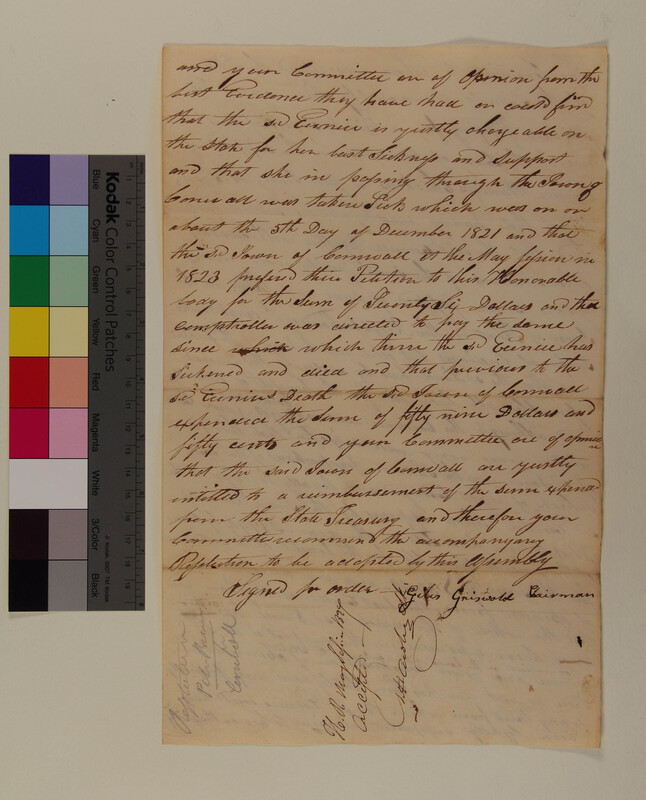 and your Committee are of Opinion from the
best Evidence they have had or could find
that the sd Eunice is justly chargeable on
the State for her last Sickness and Support
and that she in passing through the Town of
Cornwall was taken Sick which was on or
about the 5th Day of December 1821 and that
the sd Town of Cornwall at the May session in
1823 prefered their Petition to this Honorable
body for the Sum of Twenty Six Dollars and the
Comptroller was directed to pay the same
since which which time the sd Eunice has
Sickened and died and that previous to the
sd Eunices Death the sd Town of Cornwall
expended the Sum of fifty nine Dollars and
fifty cents and your Committee are of opinion
that the said Town of Cornwall are justly
intitled to a reimbursement of the sum expended
from the State Treasury and therefore your
Committee recommend the accompanying
Resolution to be adopted by this Assembly
Signed pr order Giles Griswold Cairman
H. R. May Session 1824
accepted
Resolution
Cornwall
Kodak Color Control Patches
Blue Cyan Green Yellow Red Magenta White 3/Color Black